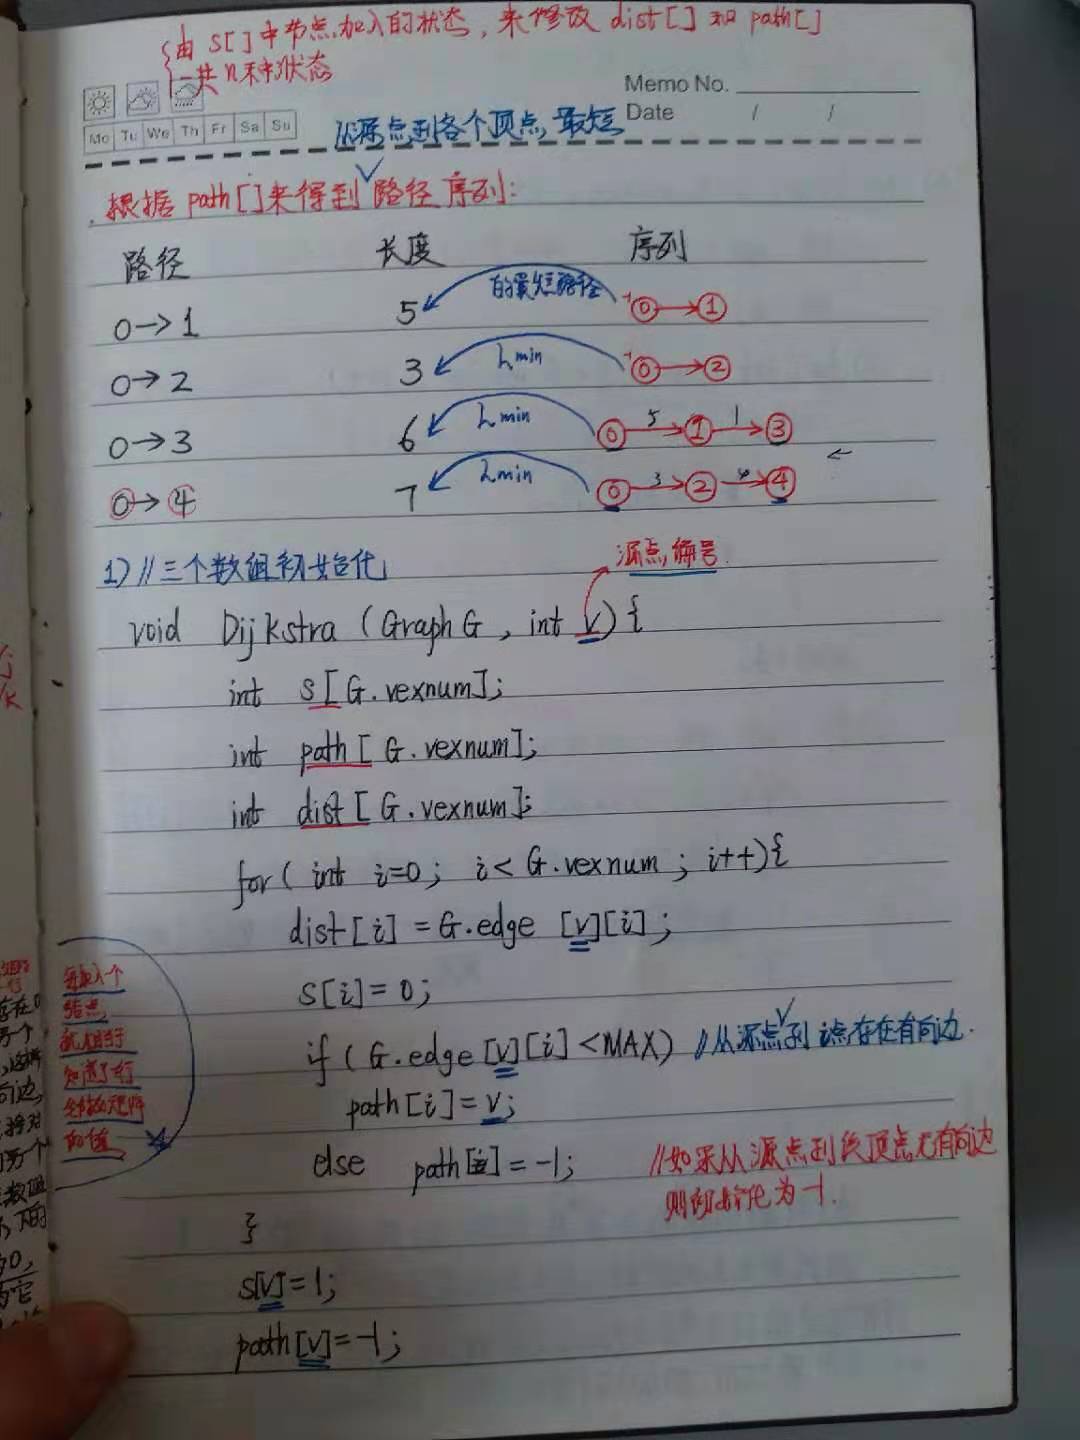 由 S[ ]中节点加入的状态，来修改 dist[ ] 和 path[ ]
一共n种状态
Memo No.
Date / /
Mo Tu We Th Fr Sa Su
从源点到各个顶点最短
根据 path[ ]来得到路径序列:
路径 长度 序列
0→1 5 的最短路径 -1 0→1
0→2 3 min -1 0→2
0→3 6 min 0 5→1 1→3
0→4 7 min 0 3→2 4→4
1) // 三个数组初始化 源点编号
void Dijkstra (Graph G, int v){
int s[G.vexnum];
int path[G.vexnum];
int dist[G.vexnum];
for( int i=0; i<G.vexnum; i++){
dist[i] = G.edge [v][i];
s[i]=0;
if (G.edge[v][i]<MAX) //从源点到 i点存在有向边.
path[i]=v;
else path[i]=-1; //如果从源点到该顶点无有向边
则初始化为-1.
}
s[v]=1;
path[v]=-1;
每加入个
结点,
就相当于
知道了一行
的值